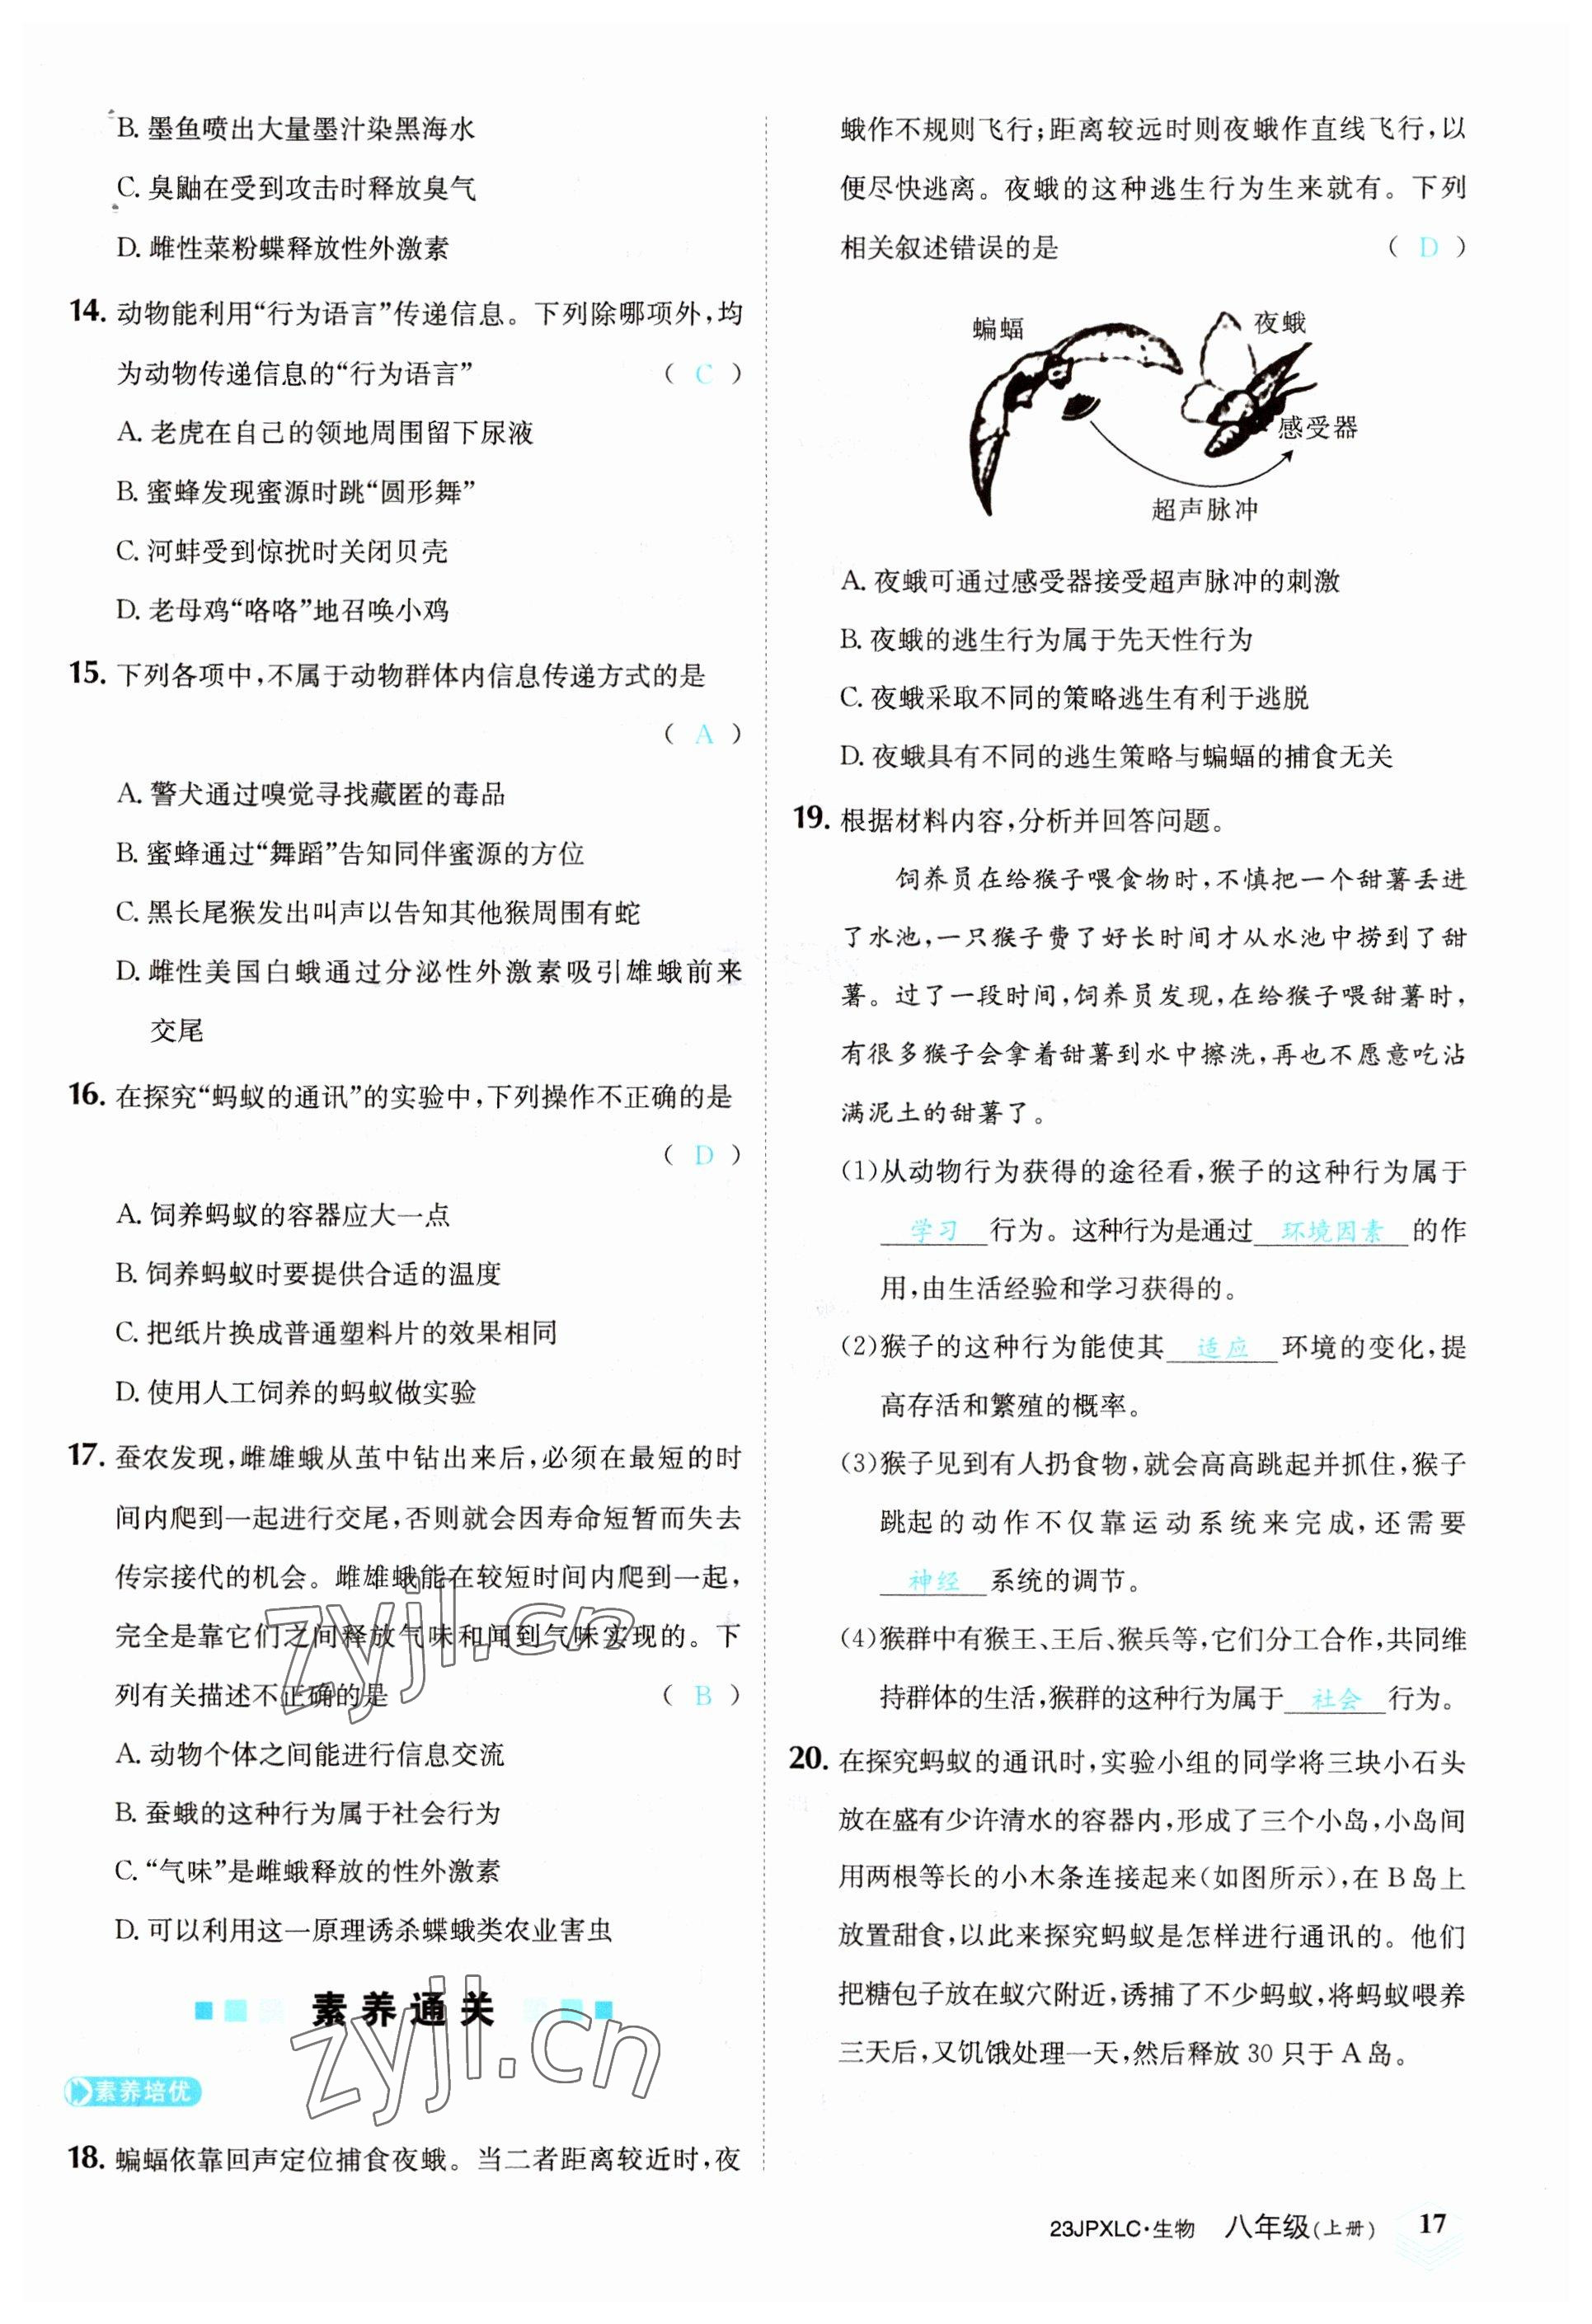 B. 墨鱼喷出大量墨汁染黑海水
C. 臭鼬在受到攻击时释放臭气
D. 雌性菜粉蝶释放性外激素
14. 动物能利用“行为语言”传递信息。下列除哪项外,均
为动物传递信息的“行为语言” （ C ）
A. 老虎在自己的领地周围留下尿液
B. 蜜蜂发现蜜源时跳“圆形舞”
C. 河蚌受到惊扰时关闭贝壳
D. 老母鸡“咯咯”地召唤小鸡
15. 下列各项中,不属于动物群体内信息传递方式的是
（ A ）
A. 警犬通过嗅觉寻找藏匿的毒品
B. 蜜蜂通过“舞蹈”告知同伴蜜源的方位
C. 黑长尾猴发出叫声以告知其他猴周围有蛇
D. 雌性美国白蛾通过分泌性外激素吸引雄蛾前来
交尾
16. 在探究“蚂蚁的通讯”的实验中,下列操作不正确的是
（ D ）
A. 饲养蚂蚁的容器应大一点
B. 饲养蚂蚁时要提供合适的温度
C. 把纸片换成普通塑料片的效果相同
D. 使用人工饲养的蚂蚁做实验
17. 蚕农发现,雌雄蛾从茧中钻出来后,必须在最短的时
间内爬到一起进行交尾,否则就会因寿命短暂而失去
传宗接代的机会。雌雄蛾能在较短时间内爬到一起,
完全是靠它们之间释放气味和闻到气味实现的。下
列有关描述不正确的是 （ B ）
A. 动物个体之间能进行信息交流
B. 蚕蛾的这种行为属于社会行为
C. “气味”是雌蛾释放的性外激素
D. 可以利用这一原理诱杀蝶蛾类农业害虫
zyjl.cn
素养通关
zyjl.cn
素养培优
18. 蝙蝠依靠回声定位捕食夜蛾。当二者距离较近时,夜
蛾作不规则飞行;距离较远时则夜蛾作直线飞行,以
便尽快逃离。夜蛾的这种逃生行为生来就有。下列
相关叙述错误的是 （ D ）
蝙蝠
夜蛾
感受器
超声脉冲
A. 夜蛾可通过感受器接受超声脉冲的刺激
B. 夜蛾的逃生行为属于先天性行为
C. 夜蛾采取不同的策略逃生有利于逃脱
D. 夜蛾具有不同的逃生策略与蝙蝠的捕食无关
19. 根据材料内容,分析并回答问题。
饲养员在给猴子喂食物时,不慎把一个甜薯丢进
了水池,一只猴子费了好长时间才从水池中捞到了甜
薯。过了一段时间,饲养员发现,在给猴子喂甜薯时,
有很多猴子会拿着甜薯到水中擦洗,再也不愿意吃沾
满泥土的甜薯了。
(1)从动物行为获得的途径看,猴子的这种行为属于
学习 行为。这种行为是通过 环境因素 的作
用,由生活经验和学习获得的。
(2)猴子的这种行为能使其 适应 环境的变化,提
高存活和繁殖的概率。
(3)猴子见到有人扔食物,就会高高跳起并抓住,猴子
跳起的动作不仅靠运动系统来完成,还需要
神经 系统的调节。
(4)猴群中有猴王、王后、猴兵等,它们分工合作,共同维
持群体的生活,猴群的这种行为属于 社会 行为。
20. 在探究蚂蚁的通讯时,实验小组的同学将三块小石头
放在盛有少许清水的容器内,形成了三个小岛,小岛间
用两根等长的小木条连接起来(如图所示),在B岛上
放置甜食,以此来探究蚂蚁是怎样进行通讯的。他们
把糖包子放在蚁穴附近,诱捕了不少蚂蚁,将蚂蚁喂养
三天后,又饥饿处理一天,然后释放30只于A岛。
23JPXLC·生物 八年级(上册) 17